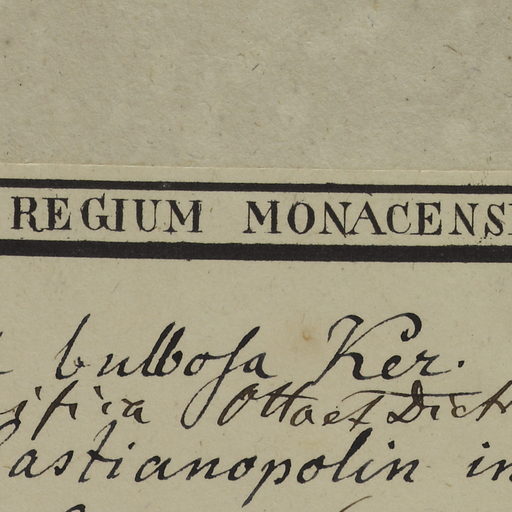 REGIUM MONACENS
bulbosa Ker.
Otto et Dietr
astianopolin in